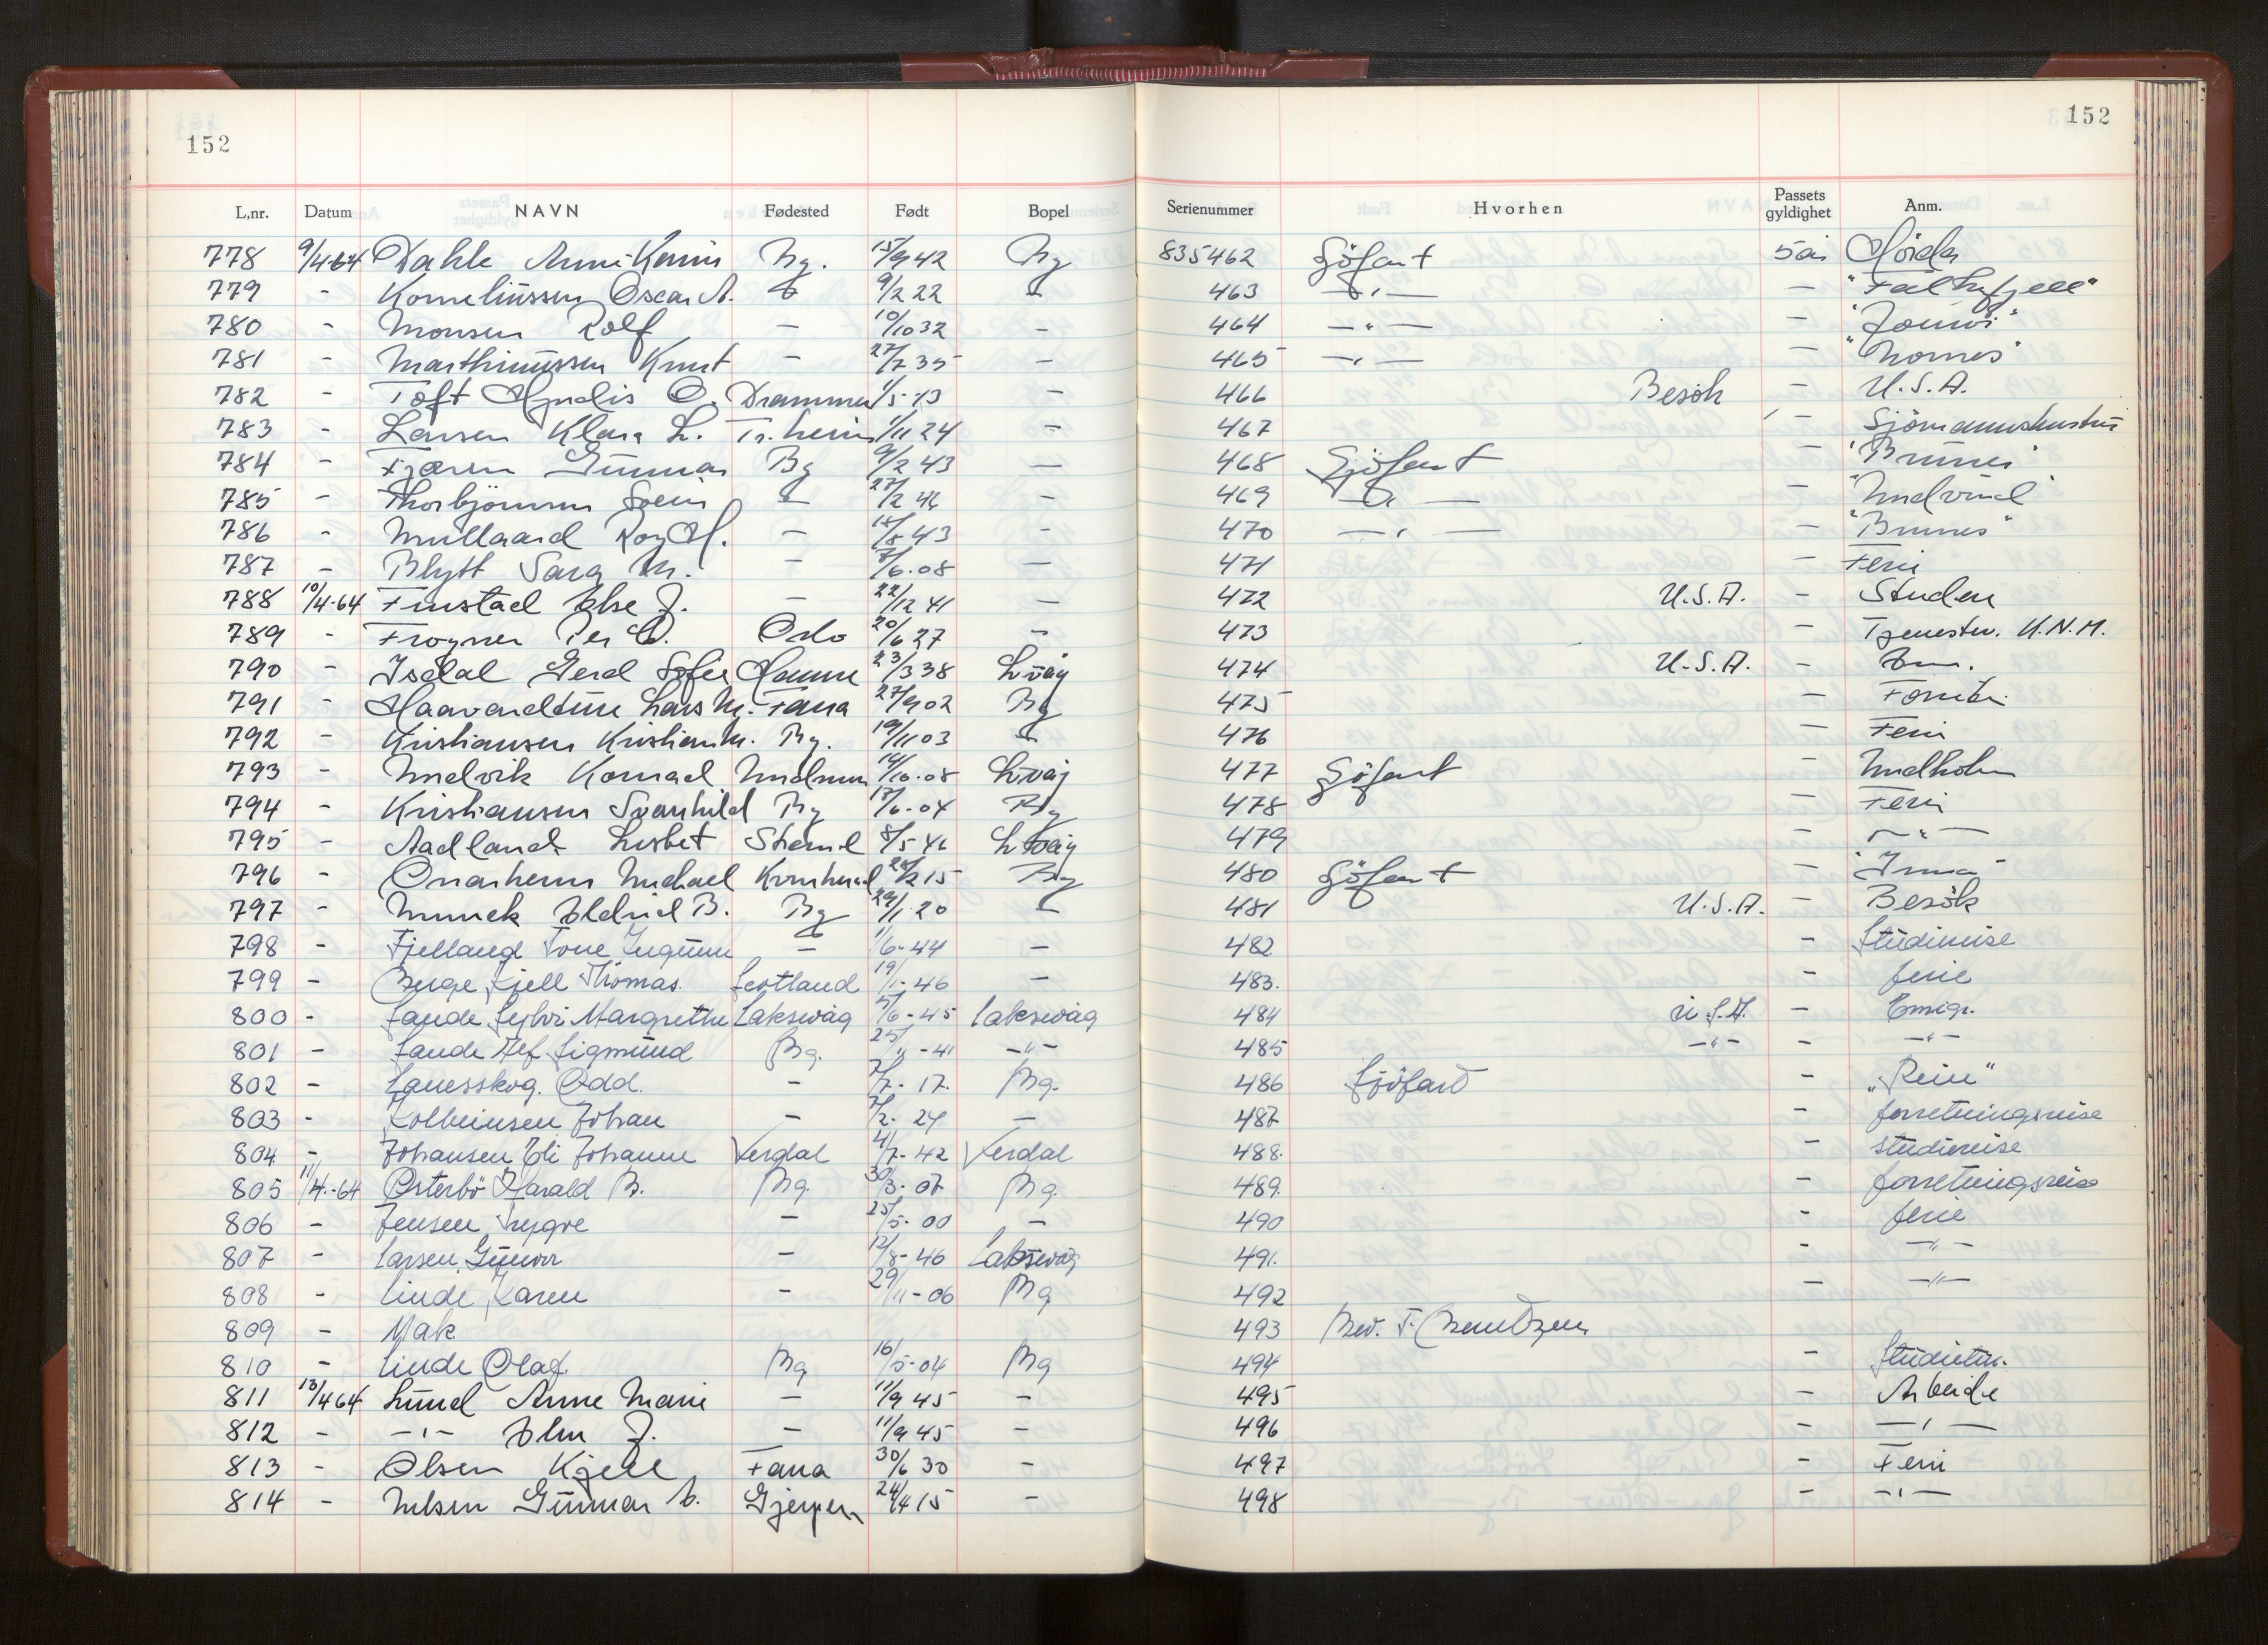 152
152
L,nr. Datum NAVN Fødested Født Bopel Serienummer Hvorhen Passets gyldighet Anm.
778 9/4-64 Dahle Anne-Karin Bg. 15/9 42 Bg 835462 Sjöfart 5 år
779 - Korneliussen Oscar A. - 9/2 22 - 463 -"- - "Falkefjell"
780 - Monsen Rolf - 10/10 32 - 464 -"- -
781 - Marthinussen Knut - 27/7 35 - 465 -"- -
782 - Toft O. Drammen 1/5-13 - 466 Besök - U.S.A.
783 - Larsen Klara L. Tr.heim 1/11 24 - 467 -
784 - Gunnar Bg 9/2 43 - 468 Sjöfart -
785 - Svein - 27/2 - 469 -"- - "Lindvind"
786 - Roy H. - 15/5 43 - 470 -"- -
787 - Blytt Sara M. - 6.08 - 471 - Ferie
788 10/4-64 Finstad Else J. - 22/12 41 - 472 U.S.A. - Studen
789 - Frogner Per Oslo 20/6 27 - 473 - Tjenester. U.N.M.
790 - Isdal Gerd Sofie 23/3 38 L.våg 474 U.S.A. -
791 - Lars M. Fana 27/9 02 Bg 475 -
792 - Kristiansen Kristian M. Bg. 19/11 03 - 476 - Ferie
793 - Konrad 14/10.08 L.våg 477 Sjöfart -
794 - Kristiansen Svanhild Bg 17/6-04 Bg 478 - Ferie
795 - Aadland Lisbet 8/5 L.våg 479 - -"-
796 - Onarheim Michael 2 15 Bg 480 Sjöfart -
797 - Munck Eldrid B. Bg 29/1 20 - 481 U.S.A. - Besök
798 - Fjelland Tone Ingunn - 1/6-44 - 482 - Studiereise
799 - Berge, Kjell Thomas. Scotland 19/1-46 - 483. - ferie
800 - Sande, Sylvi Margrethe Laksevåg 5/6-45 Laksevåg 484 U.S.A. - Emigr.
801 - Sande Alf Sigmund Bg. 25/11-41 -"- 485 -"- - -"-
802 - Lauesskog. Odd. - 7/7-17. Bg. 486 Sjöfart - "Rein"
803 - Kolbeinsen Johan - 7/2-24 - 487 - forretningsreise
804 - Johansen, Eli Johanne Verdal 4/7-42 Verdal 488. - studiereise
805 11/4-64 Østerbö Harald B. Bg. 30/3-07 Bg. 489. - forretningsreise
806 - Jensen, Trygve - 25/5-00 - 490 - ferie
807 - Larsen, Gunvor - 12/8-46 Laksevåg 491. - -"-
808 - Linde, Karen - 29/11-06 Bg 492 - -"-
809 - Mak 493 Bev. T. Berntzen
810 - Linde Olaf. Bg 16/5-04 Bg 494 -
811 13/4 64 Lund Anne Marie - 11/9 45 - 495 - Arbeide
812 - -"- J. - 11/9 45 - 496 - -"-
813 - Olsen Kjell Fana 30/6 30 - 497 - Ferie
814 - Gunnar A. Gjerpen 24/4 15 - 498 - -"-